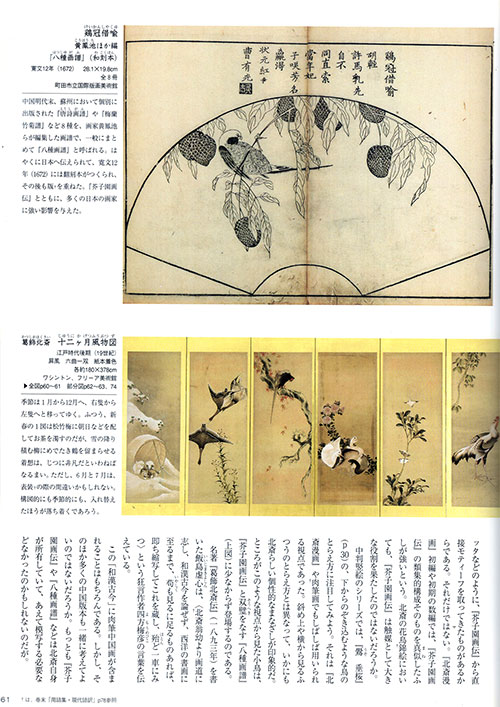 鶏冠借喩
黄鳳池ほか編
『八種画譜』（和刻本）
寛文12年（1672） 28.1×19.8cm
全8冊
町田市立国際版画美術館
中国明代末、蘇州において個別に
出版された『唐詩画譜』や『梅蘭
竹菊譜』など8種を、画家黄鳳池
らが編集した画譜で、一般にまと
めて『八種画譜』と呼ばれる。は
やくに日本へ伝えられて、寛文12
年（1672）には翻刻本がつくられ、
その後も版を重ねた。『芥子園画
伝』とともに、多くの日本の画家
に強い影響を与えた。
鶏冠借喩
胡輕
許馬乳先
自不
同直索
當年妃
子嗅芳名
贏得
状元紅
曹有光
葛飾北斎 十二ヶ月風物図
江戸時代後期（19世紀）
屏風 六曲一双 紙本着色
各約180×378cm
ワシントン、フリーア美術館
▶全図p60〜61 部分図p62〜63、74
季節は1月から12月へ、右隻から
左隻へと移ってゆく。ふつう、新
春の1図は松竹梅に朝日などを配
してお茶を濁すのだが、雪の降り
積む柳にめでたき鶴を留まらせる
着想は、じつに非凡だといわねば
なるまい。ただし、6月と7月は、
表装の際の間違いかもしれない。
構図的にも季節的にも、入れ替え
たほうが落ち着くであろう。
ッタなどのように、『芥子園画伝』から直
接モティーフを取ってきたものがあるか
らである。それだけではない。『北斎漫
画』初編や初期の数編では、『芥子園画
伝』の類集的構成そのものを真似したふ
しが強いという。北斎の花鳥錦絵におい
ても、『芥子園画伝』は触媒として大き
な役割を果たしたのではないだろうか。
中判竪絵のシリーズでは、「鷽 垂桜」
（p30）の、下からのぞき込むような鳥の
とらえ方に注目してみよう。それは『北
斎漫画』や肉筆画でもしばしば用いられ
る視点であった。斜め上や横から見るふ
つうのとらえ方とは異なって、いかにも
北斎らしい個性的なまなざしが印象的だ。
ところがこのような視点から見た小鳥は、
『芥子園画伝』と双璧をなす『八種画譜』
（上図）に少なからず登場するのである。
名著『葛飾北斎伝』（一八九三年）を書
いた飯島虚心は、「北斎翁幼より画道に
志し、和漢古今を論ぜず、西洋の書画に
至るまで、苟も見るに足るものあれば、
即ち縮写してこれを蔵し、殆ど一車にみ
つ」という狂言作者四方梅彦の言葉を伝
えている。
この「和漢古今」に肉筆中国画が含ま
れることはもちろんである。しかし、そ
のほか多くの中国版本も一緒に考えてよ
いのではないだろうか。もっとも『芥子
園画伝』や『八種画譜』などは北斎自身
が所有していて、あえて模写する必要な
どなかったのかもしれないのだが。
61
*は、巻末「用語集・現代語訳」p76参照